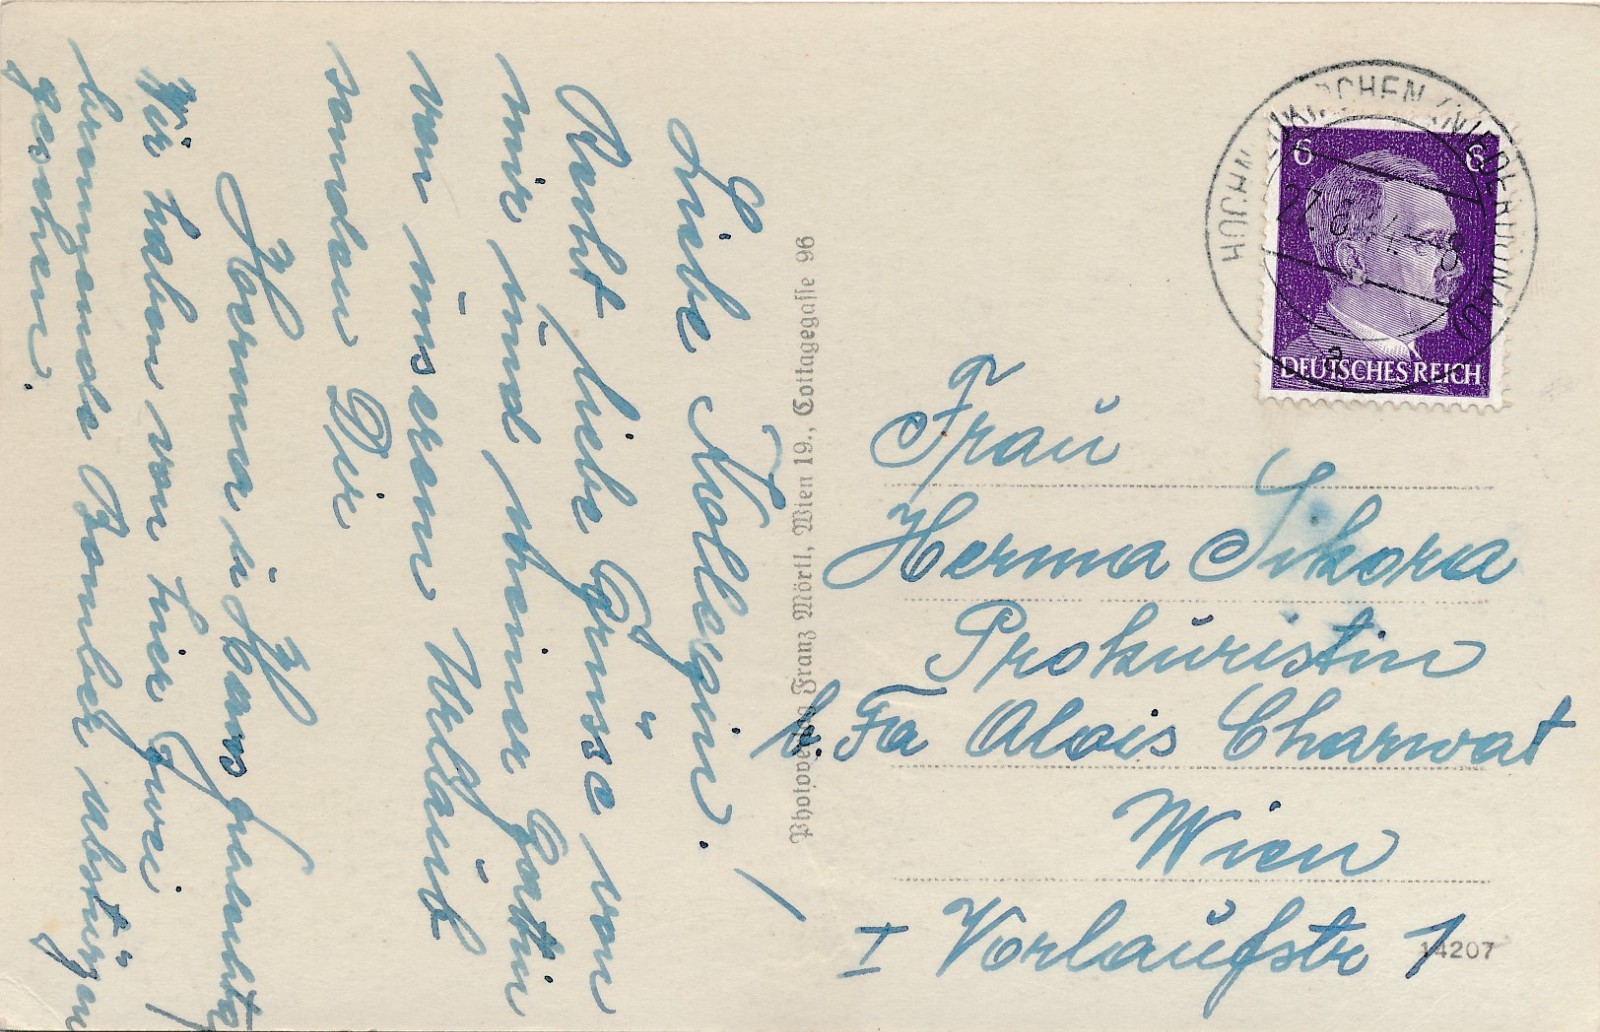 Liebe Kollegin!
Recht liebe Grüsse von
mir und meiner Gattin
von unserem Urlaub
senden Dir
Herma u. Hans
Wir haben von hier zwei
brennende Bomber abstürzen
gesehen.
Photoverlag Franz Mörtl, Wien 19., Cottagegaſſe 96
HOCHNEUKIRCHEN (NIEDERDONAU)
a
6 6
DEUTSCHES REICH
Frau
Herma Sikora
Prokuristin
b. Fa Alois Charwat
Wien
I Vorlaufstr 1
14207